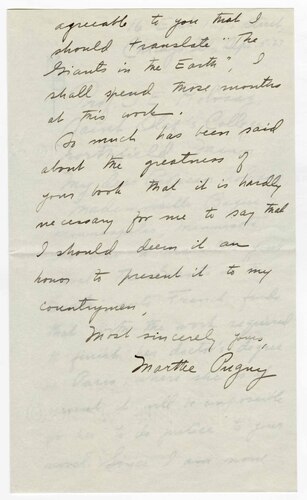 agreeable to you that I
should translate "The
Giants in the Earth", I
shall spend those months
at this work.
So much has been said
about the greatness of
your book that it is hardly
necessary for me to say that
I should deem it an
honor to present it to my
countrymen.
Most sincerely yours,
Marthe Pugny